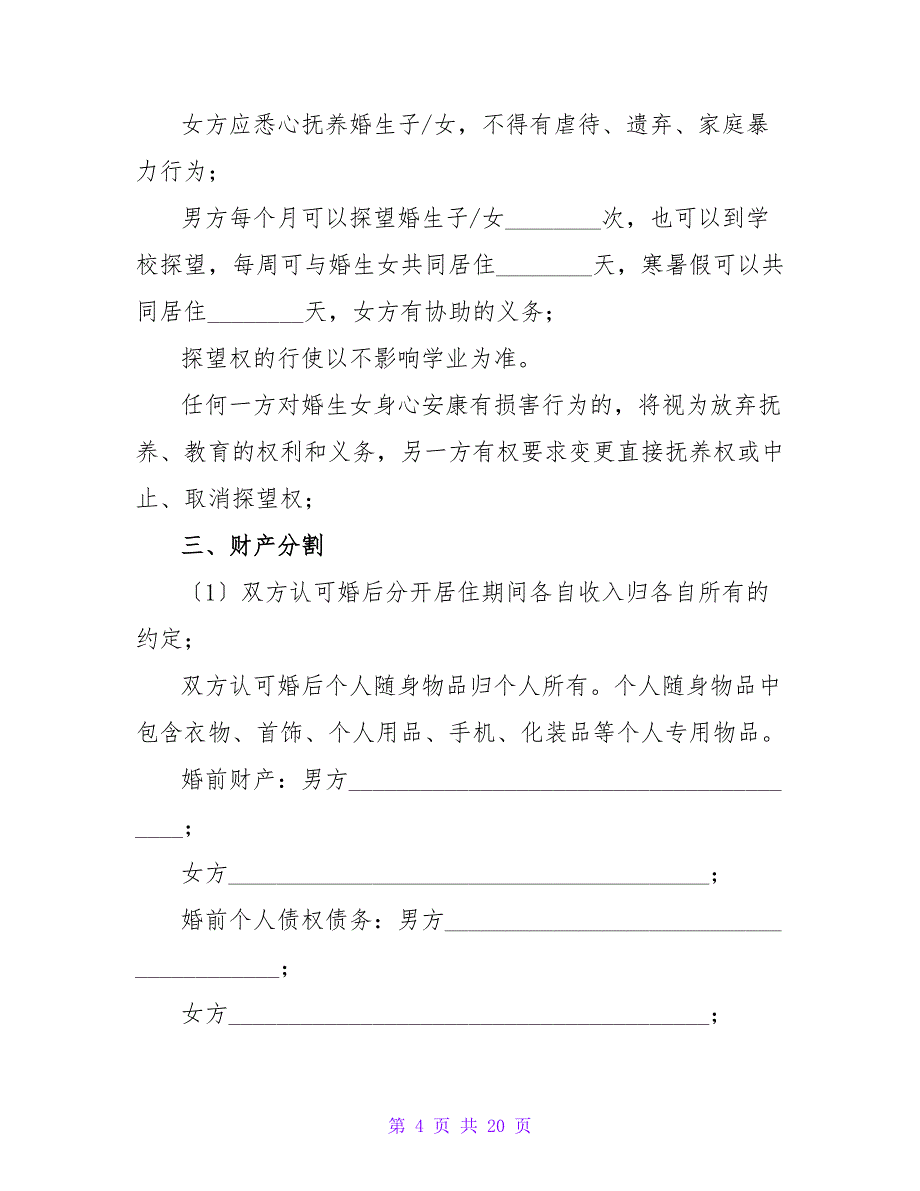 女方应悉心抚养婚生子/女，不得有虐待、遗弃、家庭暴
力行为；
男方每个月可以探望婚生子/女________次，也可以到学
校探望，每周可与婚生女共同居住________天，寒暑假可以共
同居住________天，女方有协助的义务；
探望权的行使以不影响学业为准。
任何一方对婚生女身心安康有损害行为的，将视为放弃抚
养、教育的权利和义务，另一方有权要求变更直接抚养权或中
止、取消探望权；
三、财产分割
〔1〕双方认可婚后分开居住期间各自收入归各自所有的
约定；
双方认可婚后个人随身物品归个人所有。个人随身物品中
包含衣物、首饰、个人用品、手机、化装品等个人专用物品。
婚前财产：男方____________________________________
____；
女方________________________________________；
婚前个人债权债务：男方____________________________
____________；
女方________________________________________；
第 4 页 共 20 页